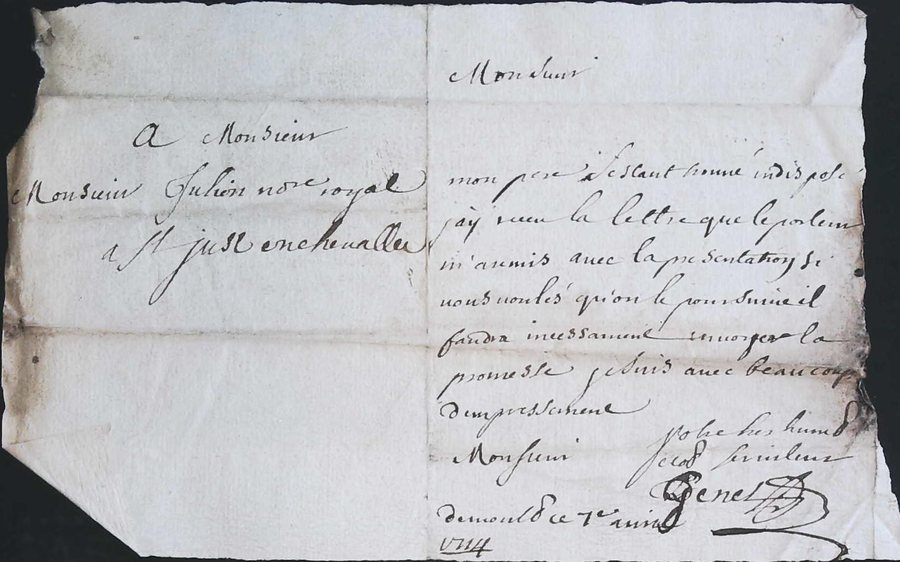 A Monsieur
Monsieur Julien nore royal
a St just en chevallee
Monsieur
mon pere sestant trouvé indisposé
jay receu la lettre que le porteur
m'a remis avec la presentation si
vous voulés qu'on le poursuive il
faudra incessament renvoyer la
promesse je suis avec beaucoup
dempressement
Monsieur
Votre tres humb
et ob serviteur
Genes
de ce 7e avril
1714